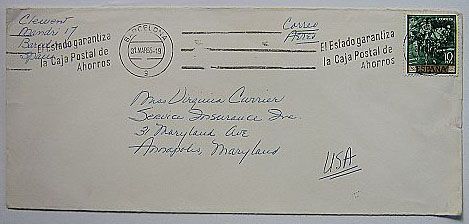 Clement
Mandri 17
Barcelona
Spain
El Estado garantiza
la Caja Postal de
Ahorros
BARCELONA
31 MAR 65-19
9
Correo
Aereo
El Estado garantiza
la Caja Postal de
Ahorros
10
ESPAÑA
Miss Virginia Currier
Service Insurance Inc.
31 Maryland Ave
Annapolis, Maryland
USA